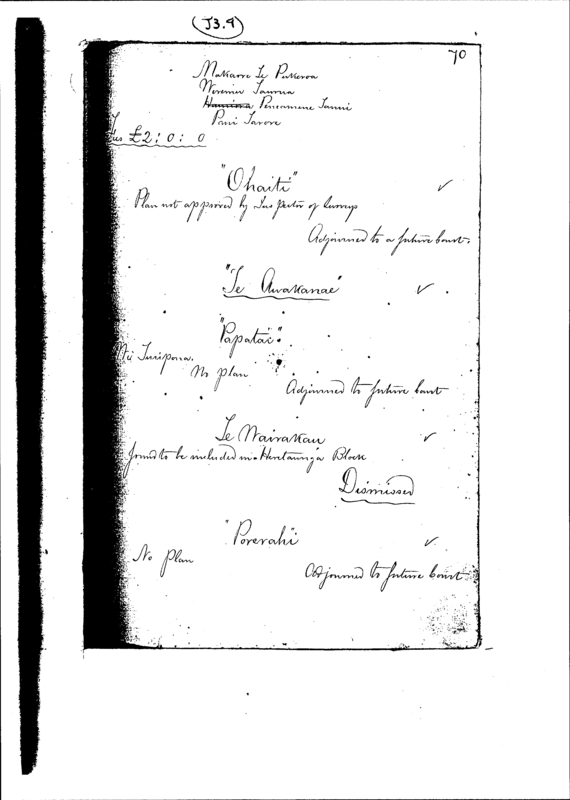 J3.9
70
Makarore Te Pukeroa
Wiremu Taurua
Pencamene Tamri
Pani Tarore
Fees £2 : 0 : 0
"Ohaiti" ✓
Plan not approved by Inspector of Surveys
Adjourned to a future Court.
"Te Awakanae" ✓
"Papatai".
Turipona.
No plan
Adjourned to future Court
Te Wairakau ✓
found to be included in Heretaunga Block
Dismissed
"Porerahi" ✓
No Plan
Adjourned to future Court